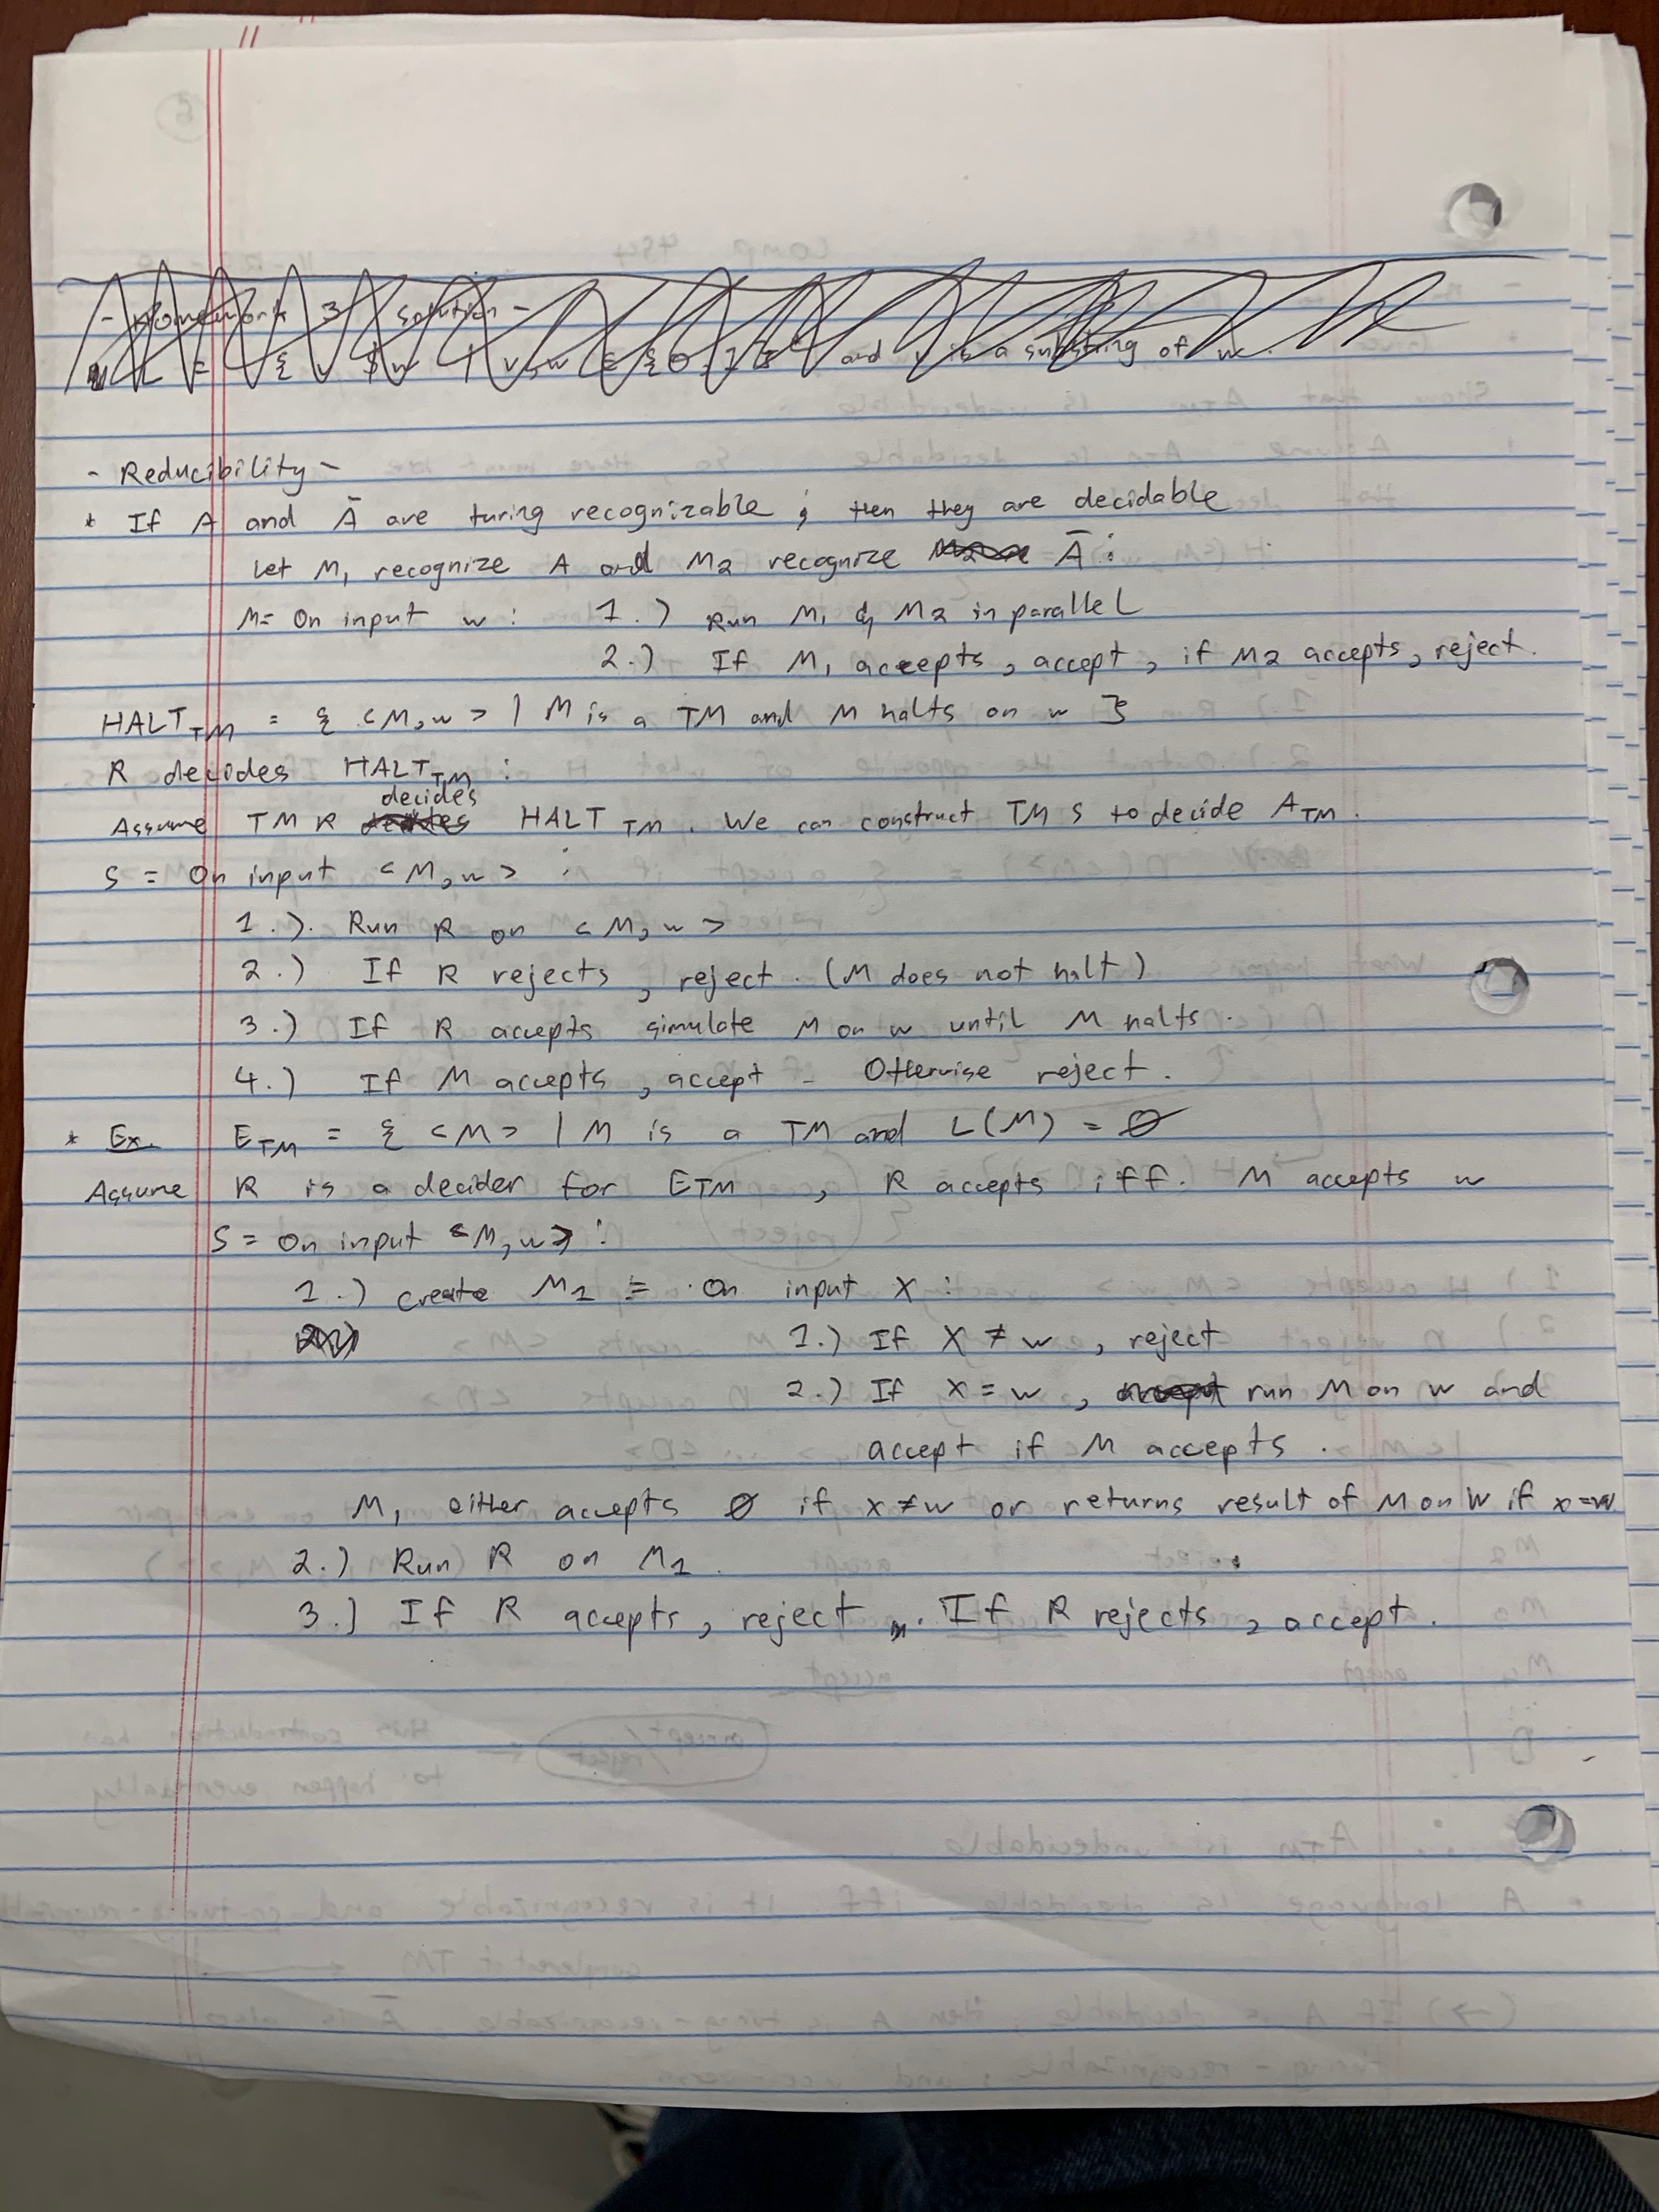 - Homework 3 solution -
L = { v $ w | v, w ∈ {0, 1}* and v is a substring of w.
- Reducibility -
* If A and Ā are turing recognizable, then they are decidable
Let M₁ recognize A and M₂ recognize Ā :
M = On input w : 1.) Run M₁ & M₂ in parallel
2.) If M₁ accepts, accept, if M₂ accepts, reject.
HALT_TM = { <M, w> | M is a TM and M halts on w }
R decides HALT_TM :
Assume TM R decides HALT_TM. We can construct TM S to decide A_TM.
S = On input <M, w> :
1.). Run R on <M, w>
2.) If R rejects, reject. (M does not halt)
3.) If R accepts simulate M on w until M halts.
4.) If M accepts, accept. Otherwise reject.
* Ex. E_TM = { <M> | M is a TM and L(M) = ∅
Assume R is a decider for E_TM, R accepts iff. M accepts w
S = On input <M, w> :
1.) create M₁ = On input X :
1.) If X ≠ w, reject
2.) If X = w, run M on w and
accept if M accepts.
M₁ either accepts ∅ if x ≠ w or returns result of M on W if x = w
2.) Run R on M₁.
3.) If R accepts, reject. If R rejects, accept.